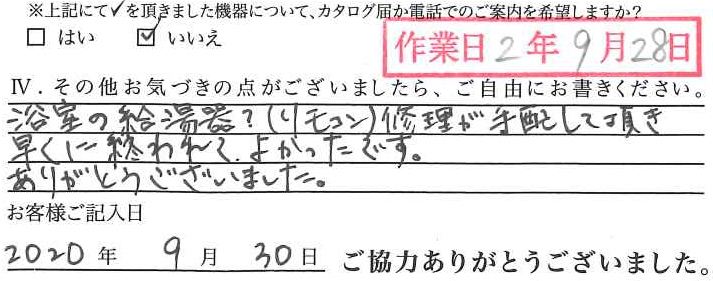 ※上記にて✓を頂きました機器について、カタログ届か電話でのご案内を希望しますか?
□ はい ☑ いいえ
作業日 2年 9月 28日
Ⅳ．その他お気づきの点がございましたら、ご自由にお書きください。
浴室の給湯器?(リモコン)修理が手配して頂き
早くに終われて、よかったです。
ありがとうございました。
お客様ご記入日
2020 年 9 月 30 日 ご協力ありがとうございました。